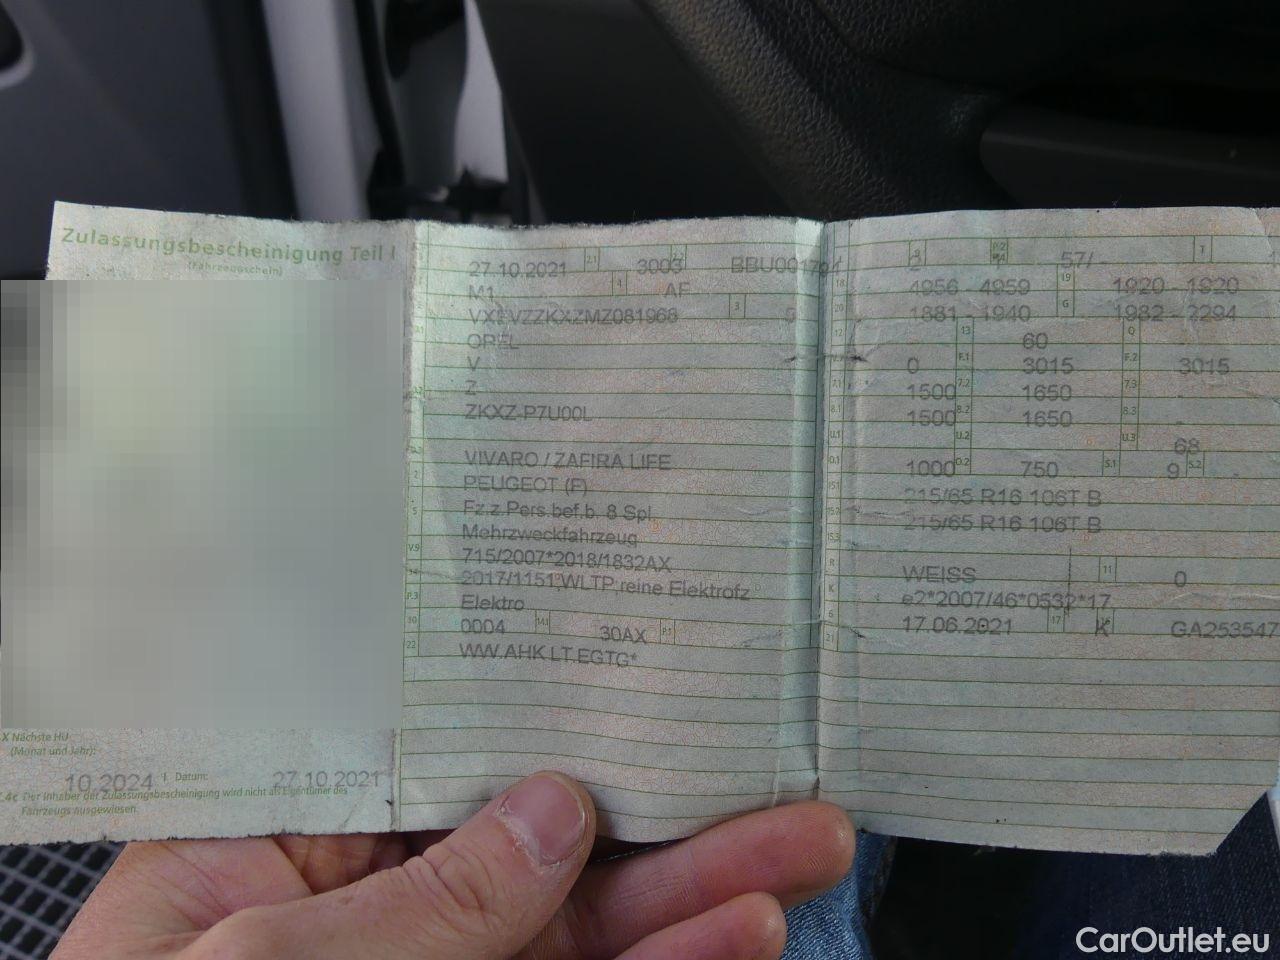 Zulassungsbescheinigung Teil I
(Fahrzeugschein)
X Nächste HU
(Monat und Jahr):
10.2024 I Datum: 27.10.2021
.4c Der Inhaber der Zulassungsbescheinigung wird nicht als Eigentümer des
Fahrzeugs ausgewiesen.
27.10.2021 2.1 3003
M1 4 AF
3
OPEL
V
Z
ZKXZ-P7U00L
VIVARO / ZAFIRA LIFE
2 PEUGEOT (F)
5 Fz.z.Pers.bef.b. 8 Spl.
Mehrzweckfahrzeug
V.9 715/2007*2018/1832AX
14 2017/1151;WLTP;reine Elektrofz
P.3 Elektro
10 0004 14.1 30AX P.1
22 WW.AHK LT.EGTG*
9 57/ T
18 4956 - 4959 19 1920 - 1920
20 1881 - 1940 G 1982 - 2294
12 13 60 Q
0 F.1 3015 F.2 3015
7.1 1500 7.2 1650 7.3 -
8.1 1500 8.2 1650 8.3 -
U.1 U.2 U.3 68
O.1 1000 O.2 750 S.1 9 S.2 -
15.1 215/65 R16 106T B
15.2 215/65 R16 106T B
15.3
R WEISS 11 0
K e2*2007/46*0532*17
6 17.06.2021 17 K GA253547
21
CarOutlet.eu